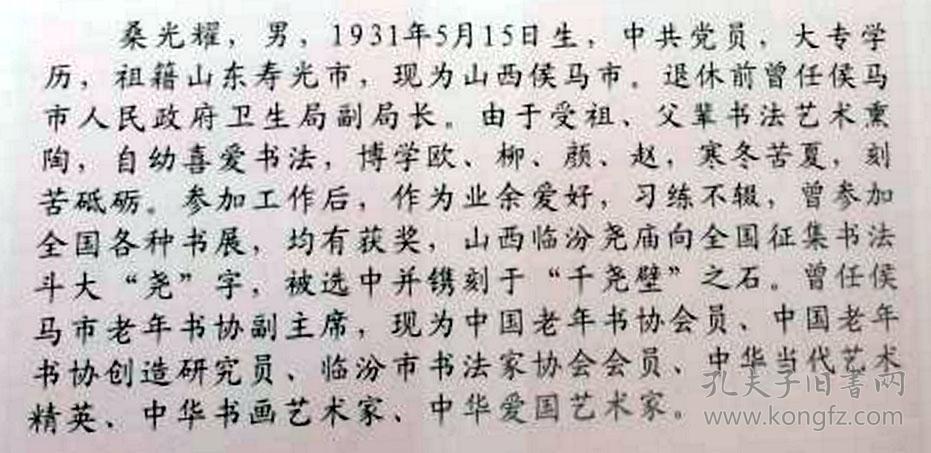 桑光耀，男，1931年5月15日生，中共党员，大专学
历，祖籍山东寿光市，现为山西侯马市。退休前曾任侯马
市人民政府卫生局副局长。由于受祖、父辈书法艺术熏
陶，自幼喜爱书法，博学欧、柳、颜、赵，寒冬苦夏，刻
苦砥砺。参加工作后，作为业余爱好，习练不辍，曾参加
全国各种书展，均有获奖，山西临汾尧庙向全国征集书法
斗大“尧”字，被选中并镌刻于“千尧壁”之石。曾任侯
马市老年书协副主席，现为中国老年书协会员、中国老年
书协创造研究员、临汾市书法家协会会员、中华当代艺术
精英、中华书画艺术家、中华爱国艺术家。
孔夫子旧书网
www.kongfz.com